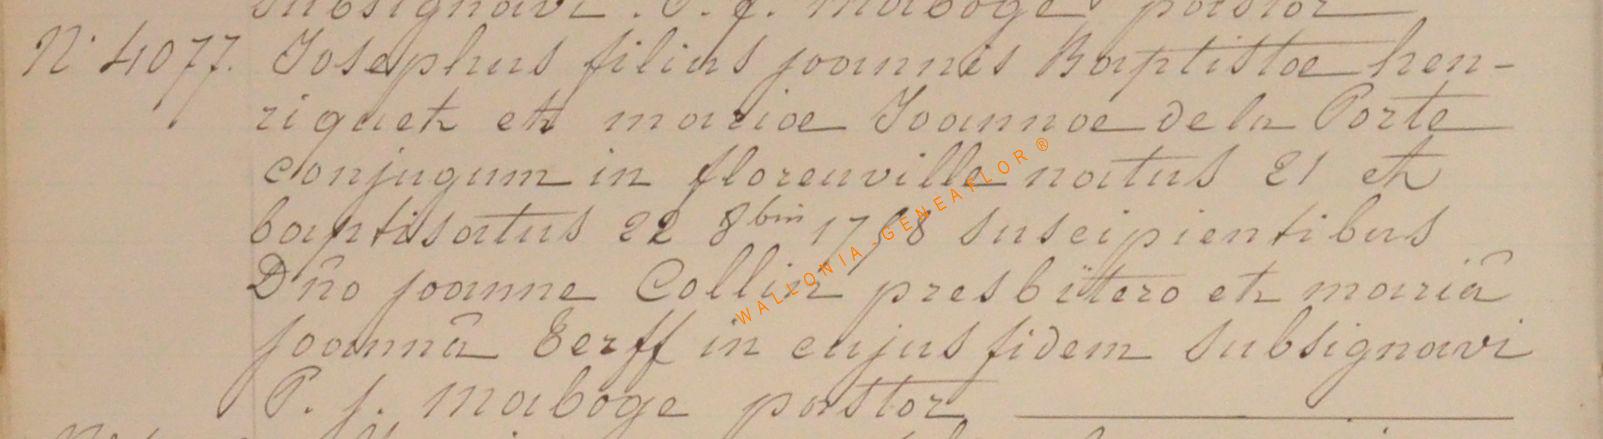 subsignavi. P. j. maboge pastor
N° 4077. Josephus filius joannis Baptistæ hen-
riquet et mariæ Joannæ de la Porte
conjugum in florenville natus 21 et
baptisatus 22 8bris 1768 suscipientibus
Dño joanne Collin presbitero et mariâ
joannâ Serff in cujus fidem subsignavi
P. j. maboge pastor
WALLONIA-GENEAFLOR ®